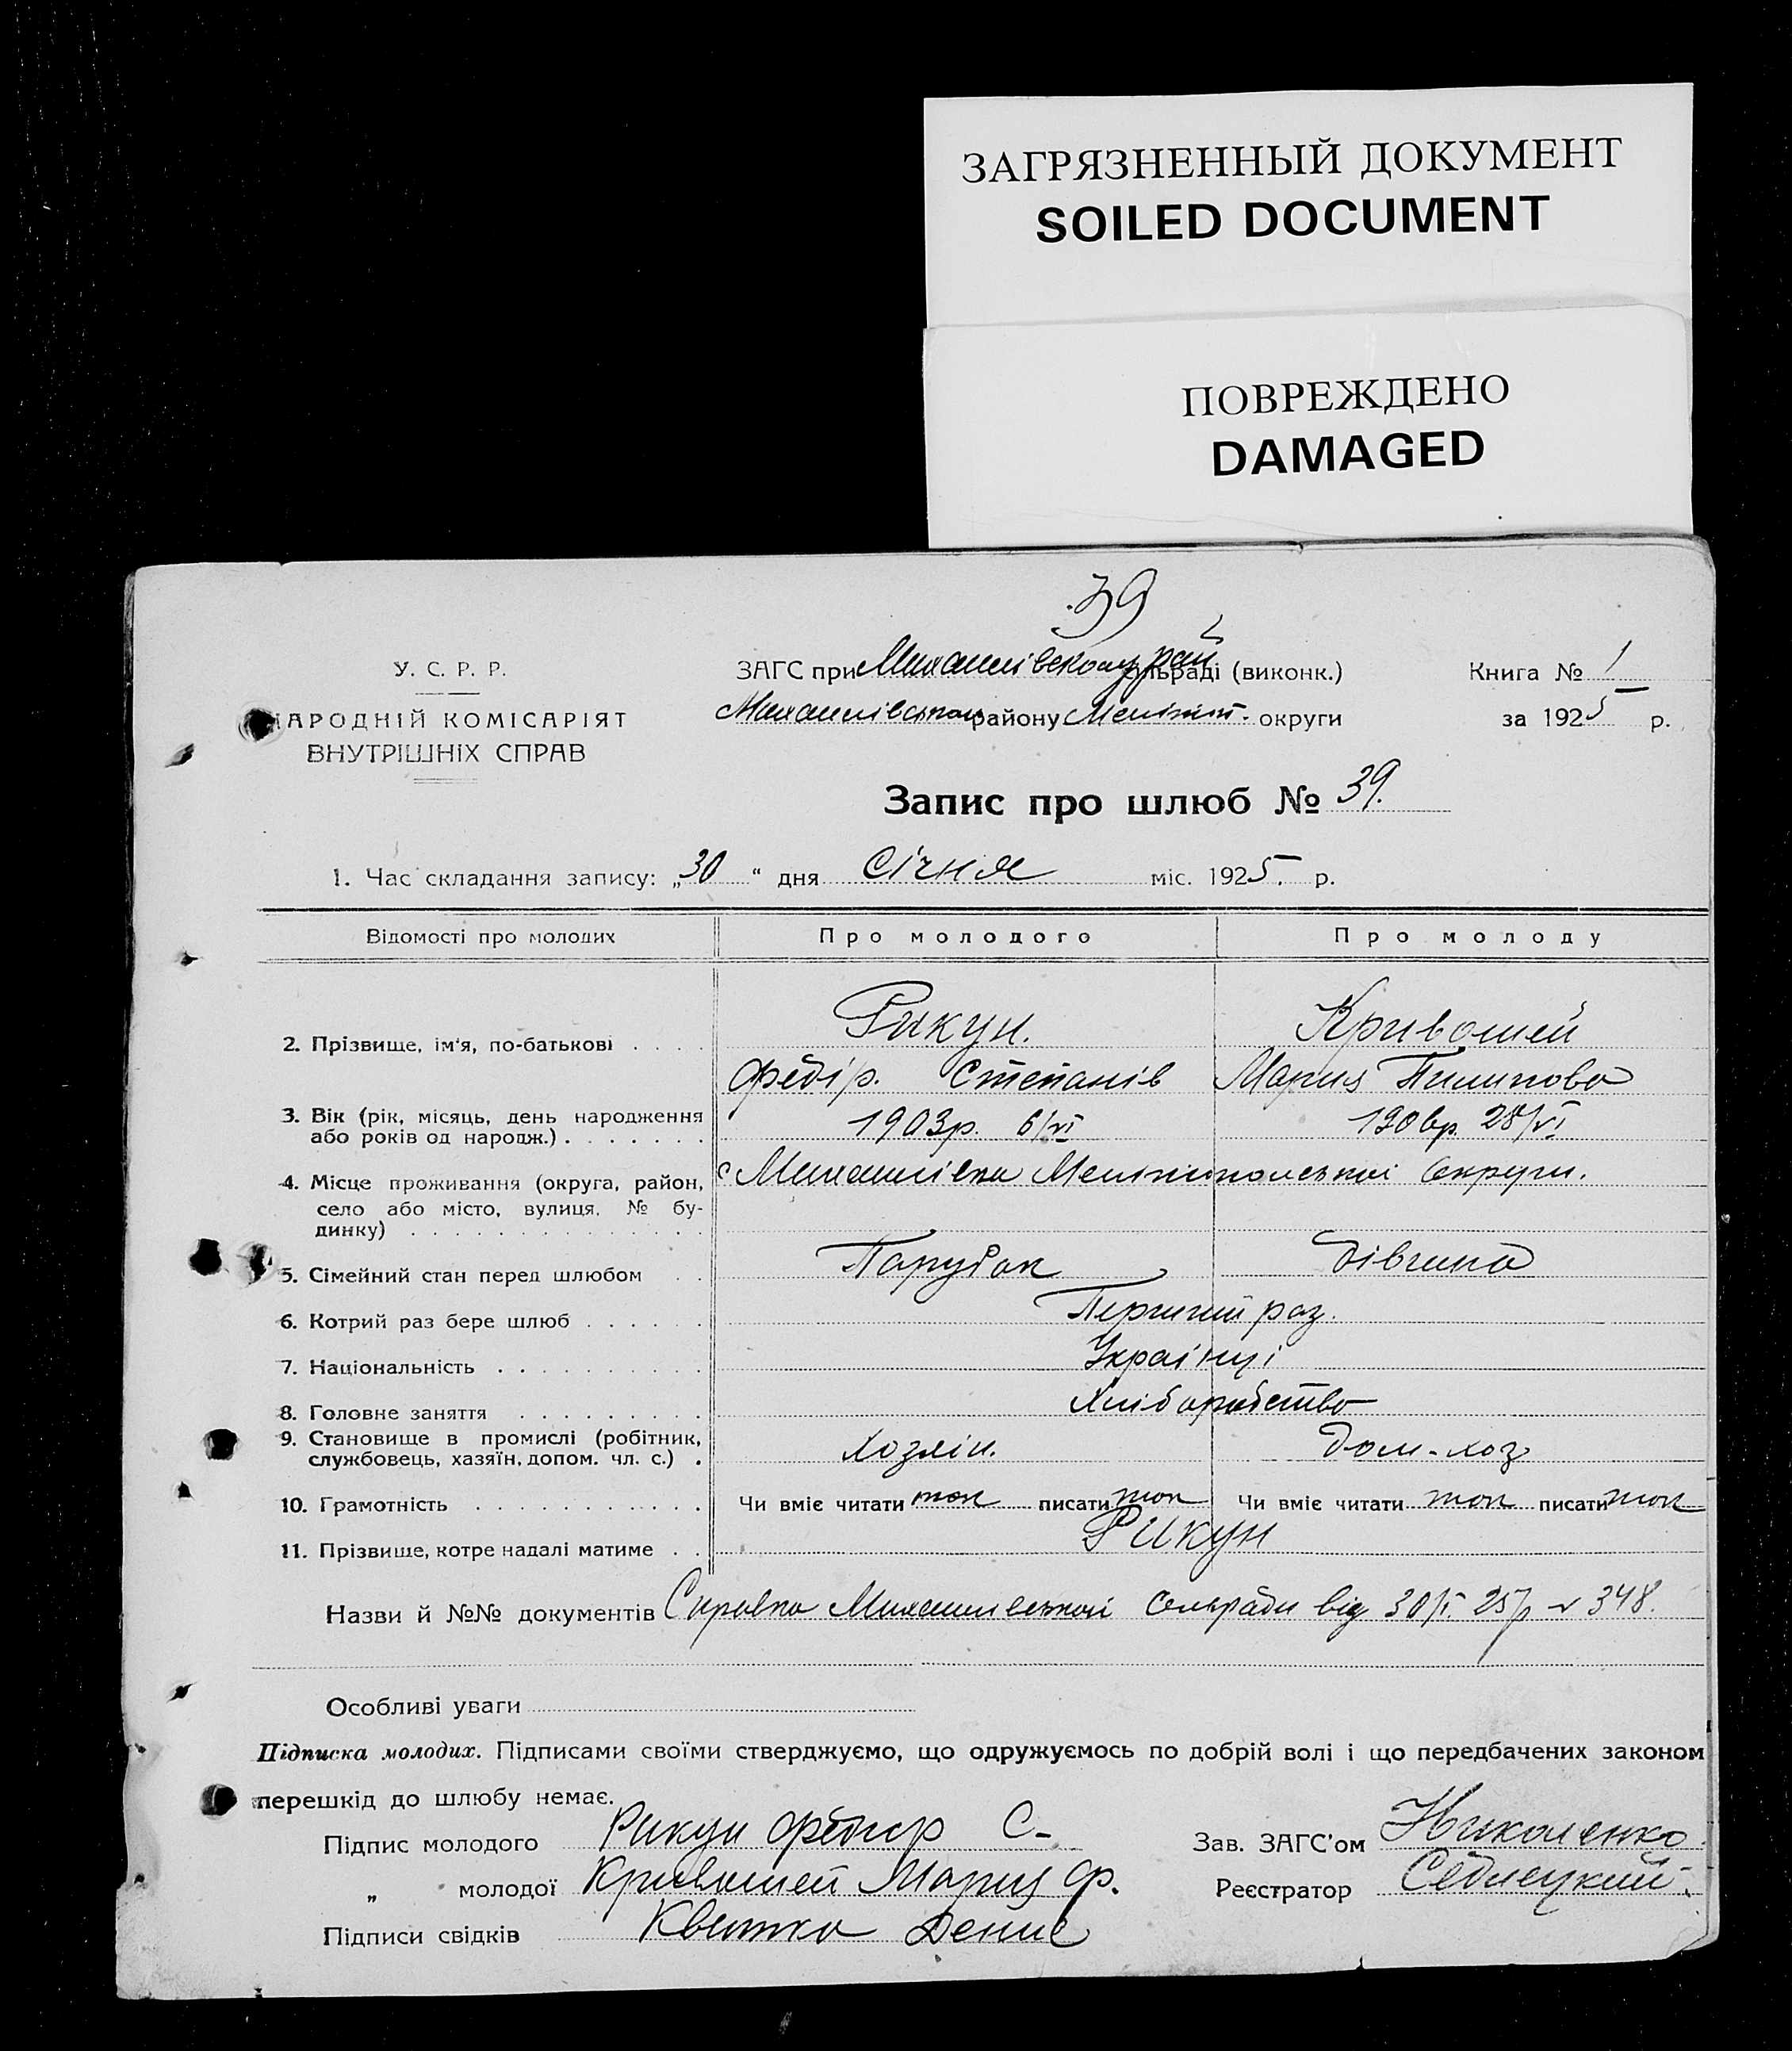 ЗАГРЯЗНЕННЫЙ ДОКУМЕНТ
SOILED DOCUMENT
ПОВРЕЖДЕНО
DAMAGED
39
У. С. Р. Р.
НАРОДНІЙ КОМІСАРІЯТ
ВНУТРІШНІХ СПРАВ
ЗАГС при Михайлівському рай сільраді (виконк.)
Михайлівського району Меліт. округи
Книга № 1
за 1925 р.
Запис про шлюб № 39.
1. Час складання запису: „30" дня Січня міс. 1925. р.
Відомості про молодих Про молодого Про молоду
2. Прізвище, ім'я, по-батькові . . . . Рикун. Кривошей
Федір. Степанів Мария Пилипова
3. Вік (рік, місяць, день народження
або років од народж.) . . . . . . . 1903р. 6/VI 28/VI
4. Місце проживання (округа, район, с Михайлівка Мелітопольської Округи.
село або місто, вулиця, № бу-
динку) . . . . . . . . . . . . . .
5. Сімейний стан перед шлюбом . . Парубок дівчина
6. Котрий раз бере шлюб . . . . . . Перший раз.
7. Національність . . . . . . . . . . Українці
8. Головне заняття . . . . . . . . . Хліборобство
9. Становище в промислі (робітник,
службовець, хазяїн, допом. чл. с.) . Хозяін. Дом-хоз
10. Грамотність . . . . . . . . . . . Чи вміє читати так писати так Чи вміє читати так писати так
11. Прізвище, котре надалі матиме . . Рикун
Назви й №№ документів Справка Михайлівської Сільради від 30/I 25р № 348.
Особливі уваги
Підписка молодих. Підписами своїми стверджуємо, що одружуємось по добрій волі і що передбачених законом
перешкід до шлюбу немає.
Підпис молодого Рикун Федир С-
„ молодої Кривошей Мария Ф.
Підписи свідків Квитка Денис
Зав. ЗАГС'ом Николенко
Реєстратор Седлецкий